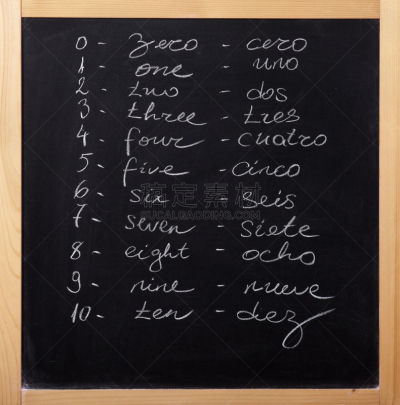 0 - zero - cero
1 - one - uno
2 - two - dos
3 - three - tres
4 - four - cuatro
5 - five - cinco
6 - six - seis
7 - seven - siete
8 - eight - ocho
9 - nine - nueve
10 - ten - diez
搞定素材
SUCAI.GAODING.COM